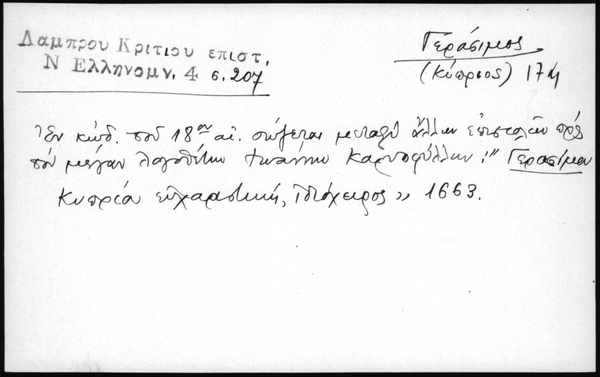 Λαμπρου Κριτιου επιστ.
Ν Ελληνομν. 4 σ. 207
Γεράσιμος
(Κύπριος) 17
Ἐν κώδ. τοῦ 18ου αἰ. σώζεται μεταξὺ ἄλλων ἐπιστολῶν πρὸς
τὸν μέγαν λογοθέτην Ἰωάννην Καρυοφύλλην: "Γερασίμου
Κυπρίου εὐχαριστική, ἰδιόχειρος" 1663.